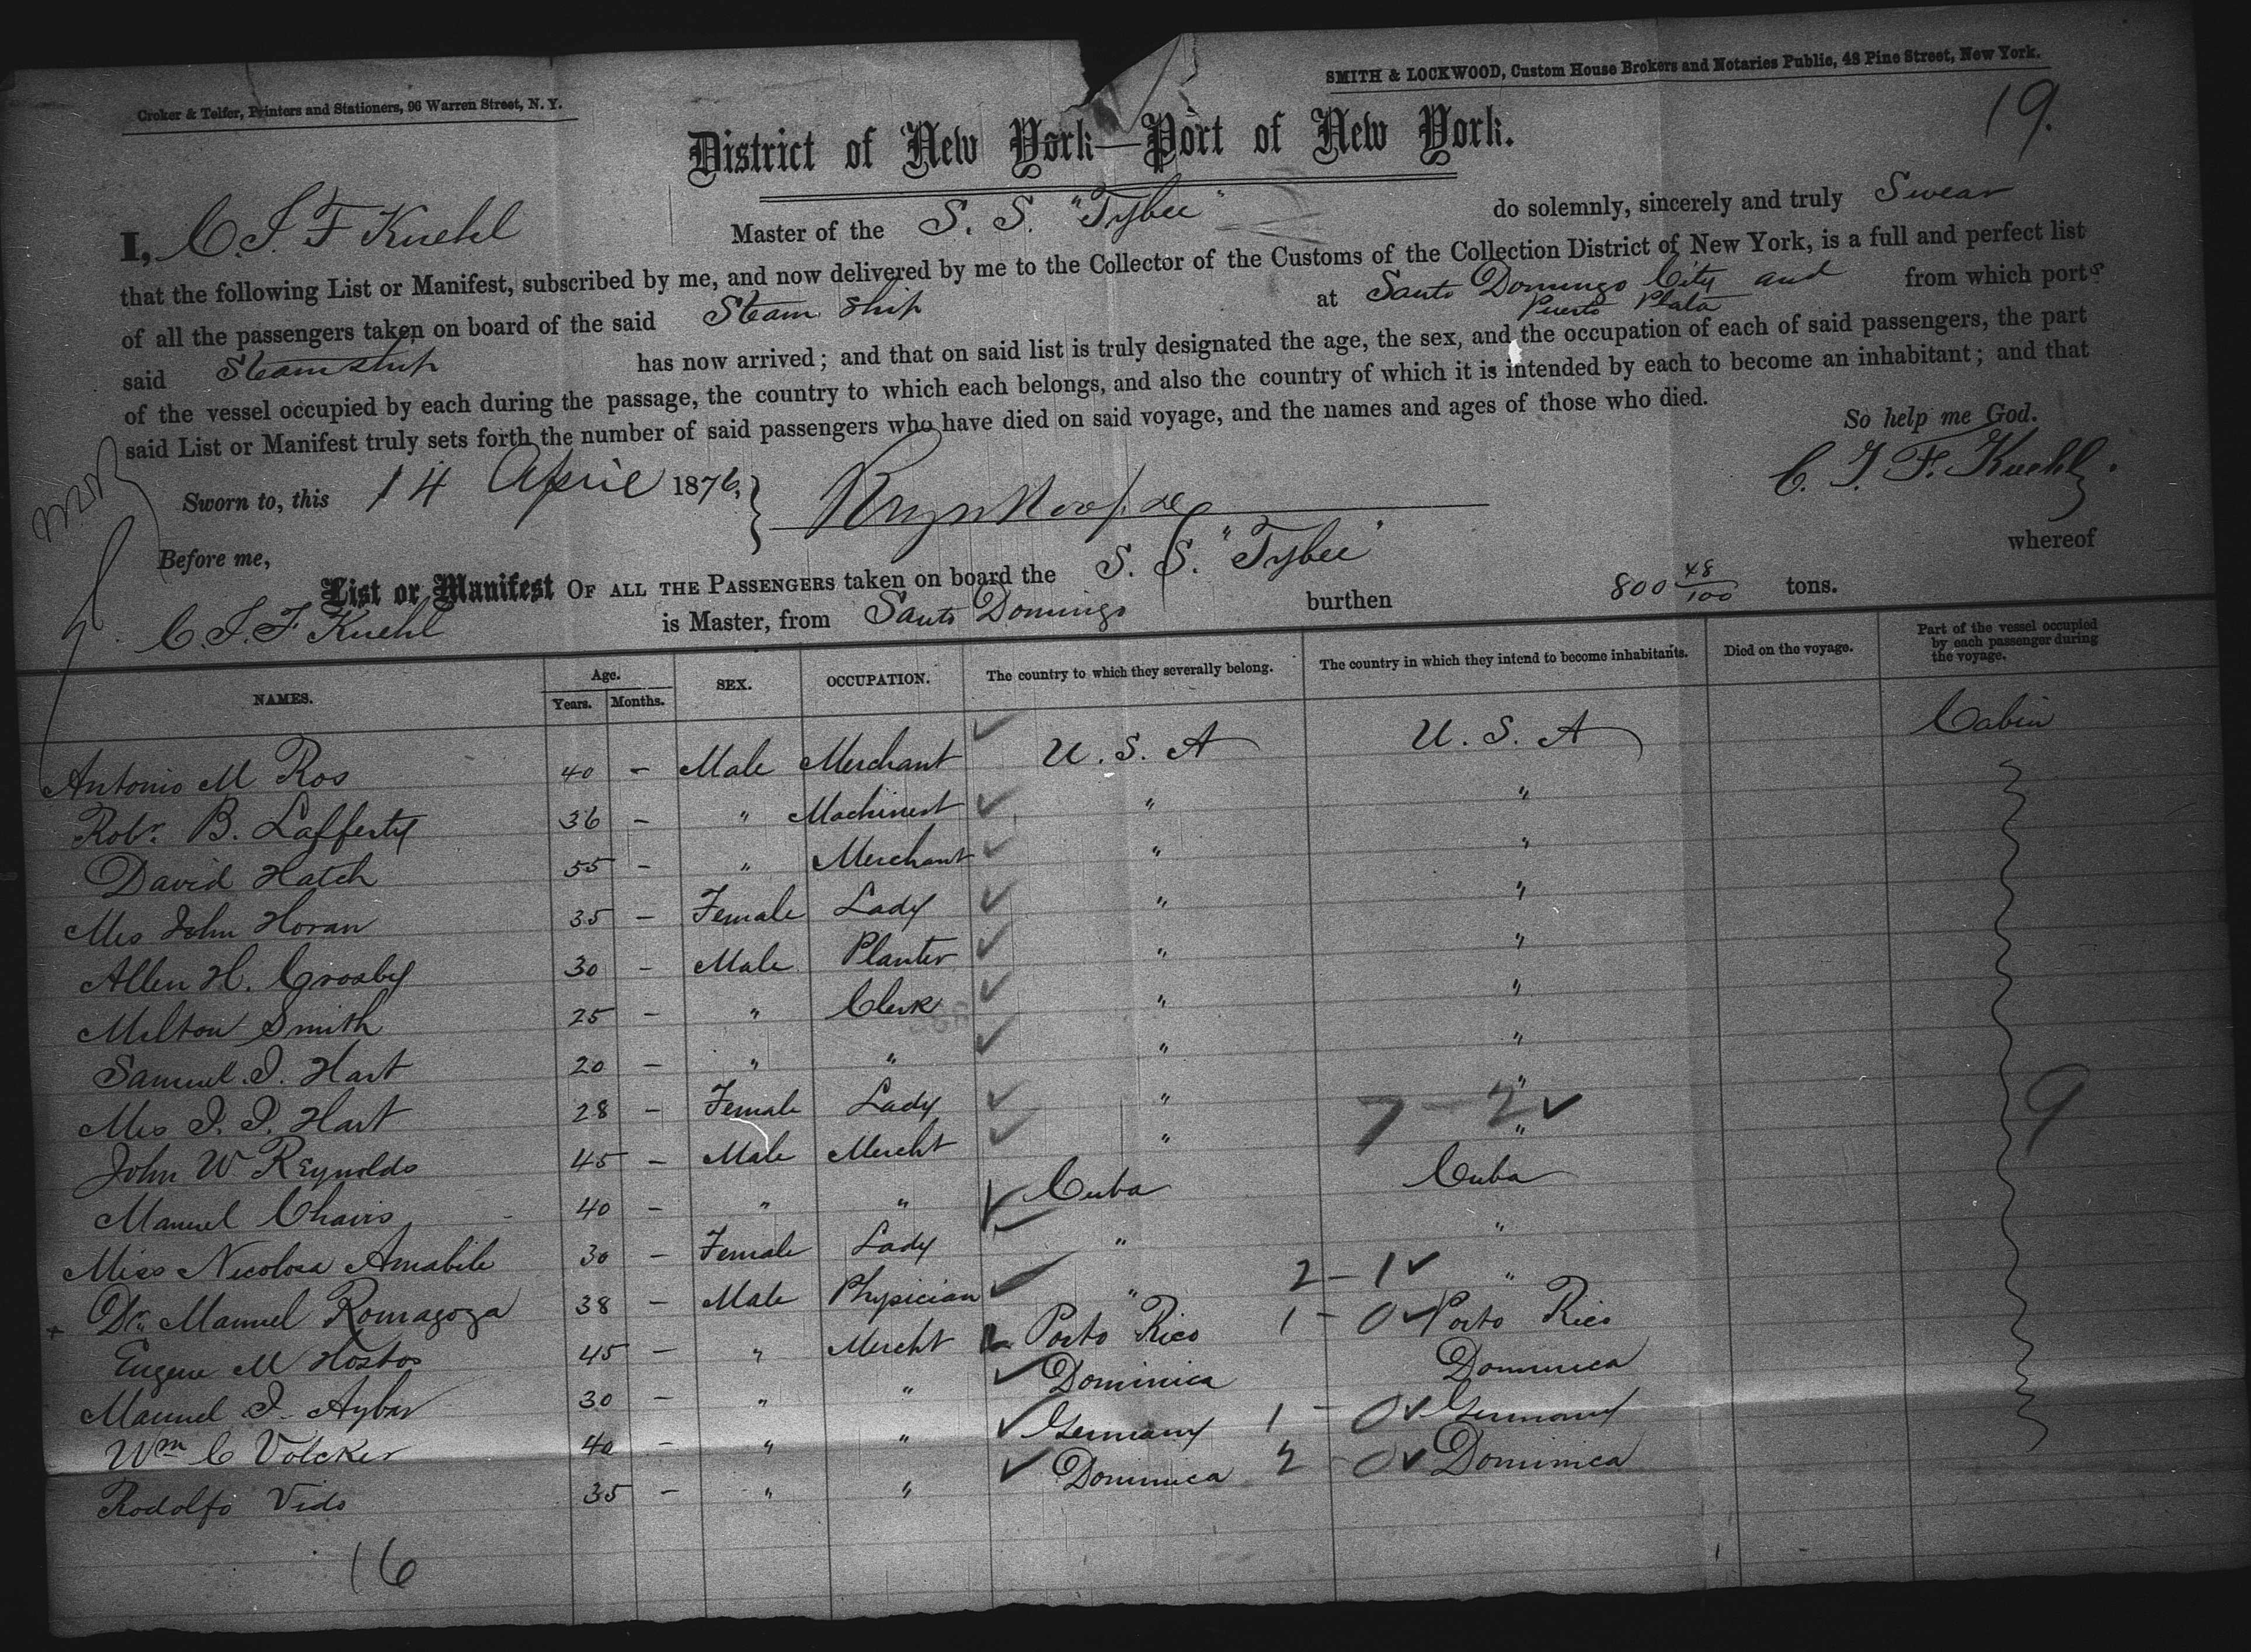 Croker & Telfer, Printers and Stationers, 96 Warren Street, N. Y.
SMITH & LOCKWOOD, Custom House Brokers and Notaries Public, 48 Pine Street, New York.
19.
District of New York—Port of New York.
I, C. J. F Kuehl Master of the S. S. "Tybee" do solemnly, sincerely and truly Swear
that the following List or Manifest, subscribed by me, and now delivered by me to the Collector of the Customs of the Collection District of New York, is a full and perfect list
of all the passengers taken on board of the said Steam Ship at Santo Domingo City and Puerto Plata from which ports
said Steamship has now arrived; and that on said list is truly designated the age, the sex, and the occupation of each of said passengers, the part
of the vessel occupied by each during the passage, the country to which each belongs, and also the country of which it is intended by each to become an inhabitant; and that
said List or Manifest truly sets forth the number of said passengers who have died on said voyage, and the names and ages of those who died.
So help me God.
Sworn to, this 14 April 1876, C. J. F. Kuehl.
Before me,
List or Manifest OF ALL THE PASSENGERS taken on board the S. S. "Tybee" whereof
C. J. F Kuehl is Master, from Santo Domingo burthen 800 48/100 tons.
NAMES. Age. Years. Months. SEX. OCCUPATION. The country to which they severally belong. The country in which they intend to become inhabitants. Died on the voyage. Part of the vessel occupied by each passenger during the voyage.
Antonio M Ros 40 – Male Merchant U. S. A U. S. A Cabin
Robt. B. Lafferty 36 – " Machinest " "
David Hatch 55 – " Merchant " "
Mrs John Horan 35 – Female Lady " "
Allen H. Crosby 30 – Male Planter " "
Milton Smith 25 – " Clerk " "
Samuel. J. Hart 20 – " " " "
Mrs J. J. Hart 28 – Female Lady " " 7 – 2 9
John W Reynolds 45 – Male Mercht " "
Manuel Chairs 40 – " " Cuba Cuba
Miss Nicolosa Amabile 30 – Female Lady " "
Dr. Manuel Romagoza 38 – Male Physician " 2 – 1 "
Eugene M Hostos 45 – " Mercht Porto Rico 1 – 0 Porto Rico
Manuel J. Aybar 30 – " " Dominica Dominica
Wm C Volcker 40 – " " Germany 1 – 0 Germany
Rodolfo Vido 35 – " " Dominica 2 – 0 Dominica
16